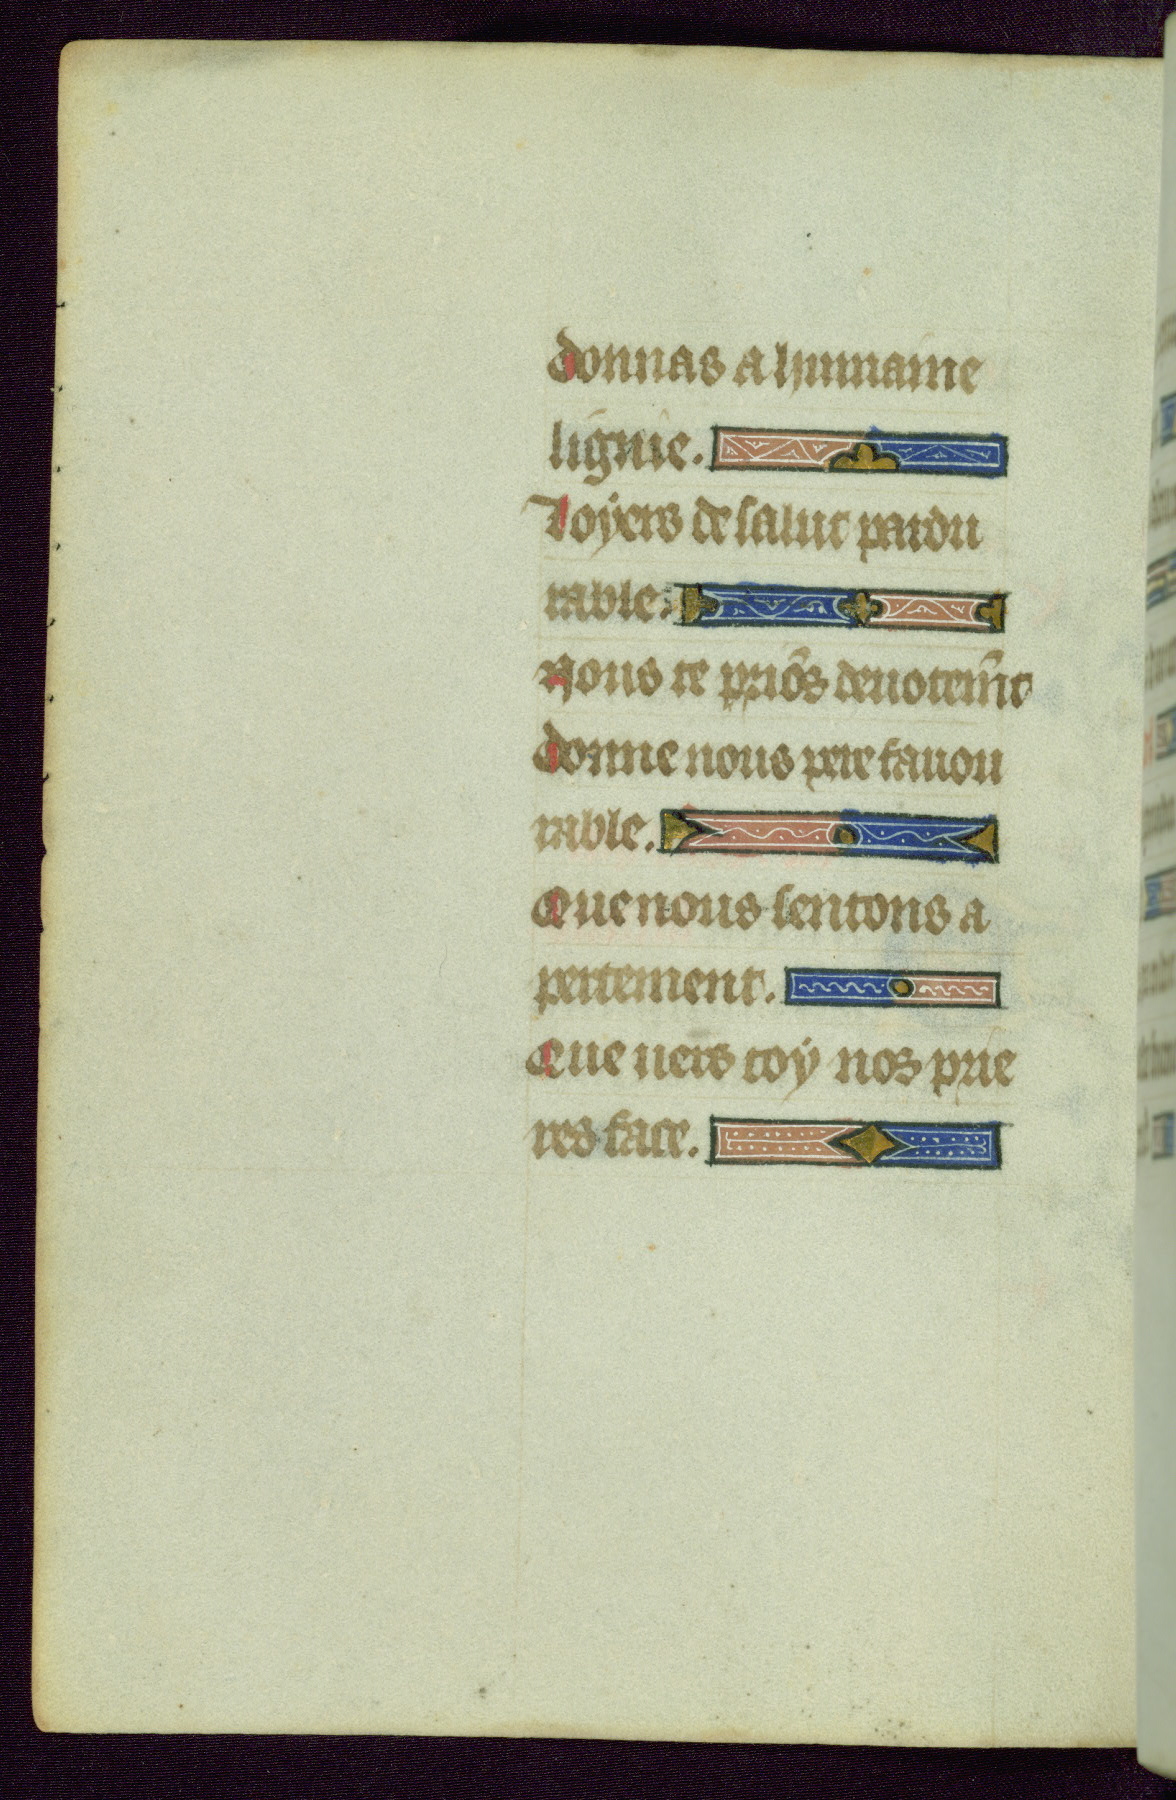 donnas a lhumaine
lignie.
Loÿers de salut pardu
rable.
Nous te priōs deuotem̄t
donne nous pere fauou
rable.
Que nous sentons a
pertement.
Que uers toÿ nos prie
res face.